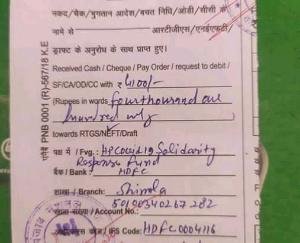 नकद/चेक/भुगतान आदेश/बचत निधि/ओडी/सीसी के
नाम से आरटीजीएस/एनईएफटी/
ड्राफ्ट के अनुरोध के साथ प्राप्त हुए।
Received Cash / Cheque / Pay Order / request to debit /
SF/CA/OD/CC with ₹ 4100/-
(Rupees in words fourthousand one
hundred only
towards RTGS/NEFT/Draft
पक्ष में / Fvg. : HPCOVID19 Solidarity
Response Fund
बैंक / Bank : HDFC
शाखा / Branch : Shimla
50100340267282
खाता संख्या / Account No.:
कोड / IFS Code: HDFC0004116
एनपी PNB 0001 (R)-567/18 K.E